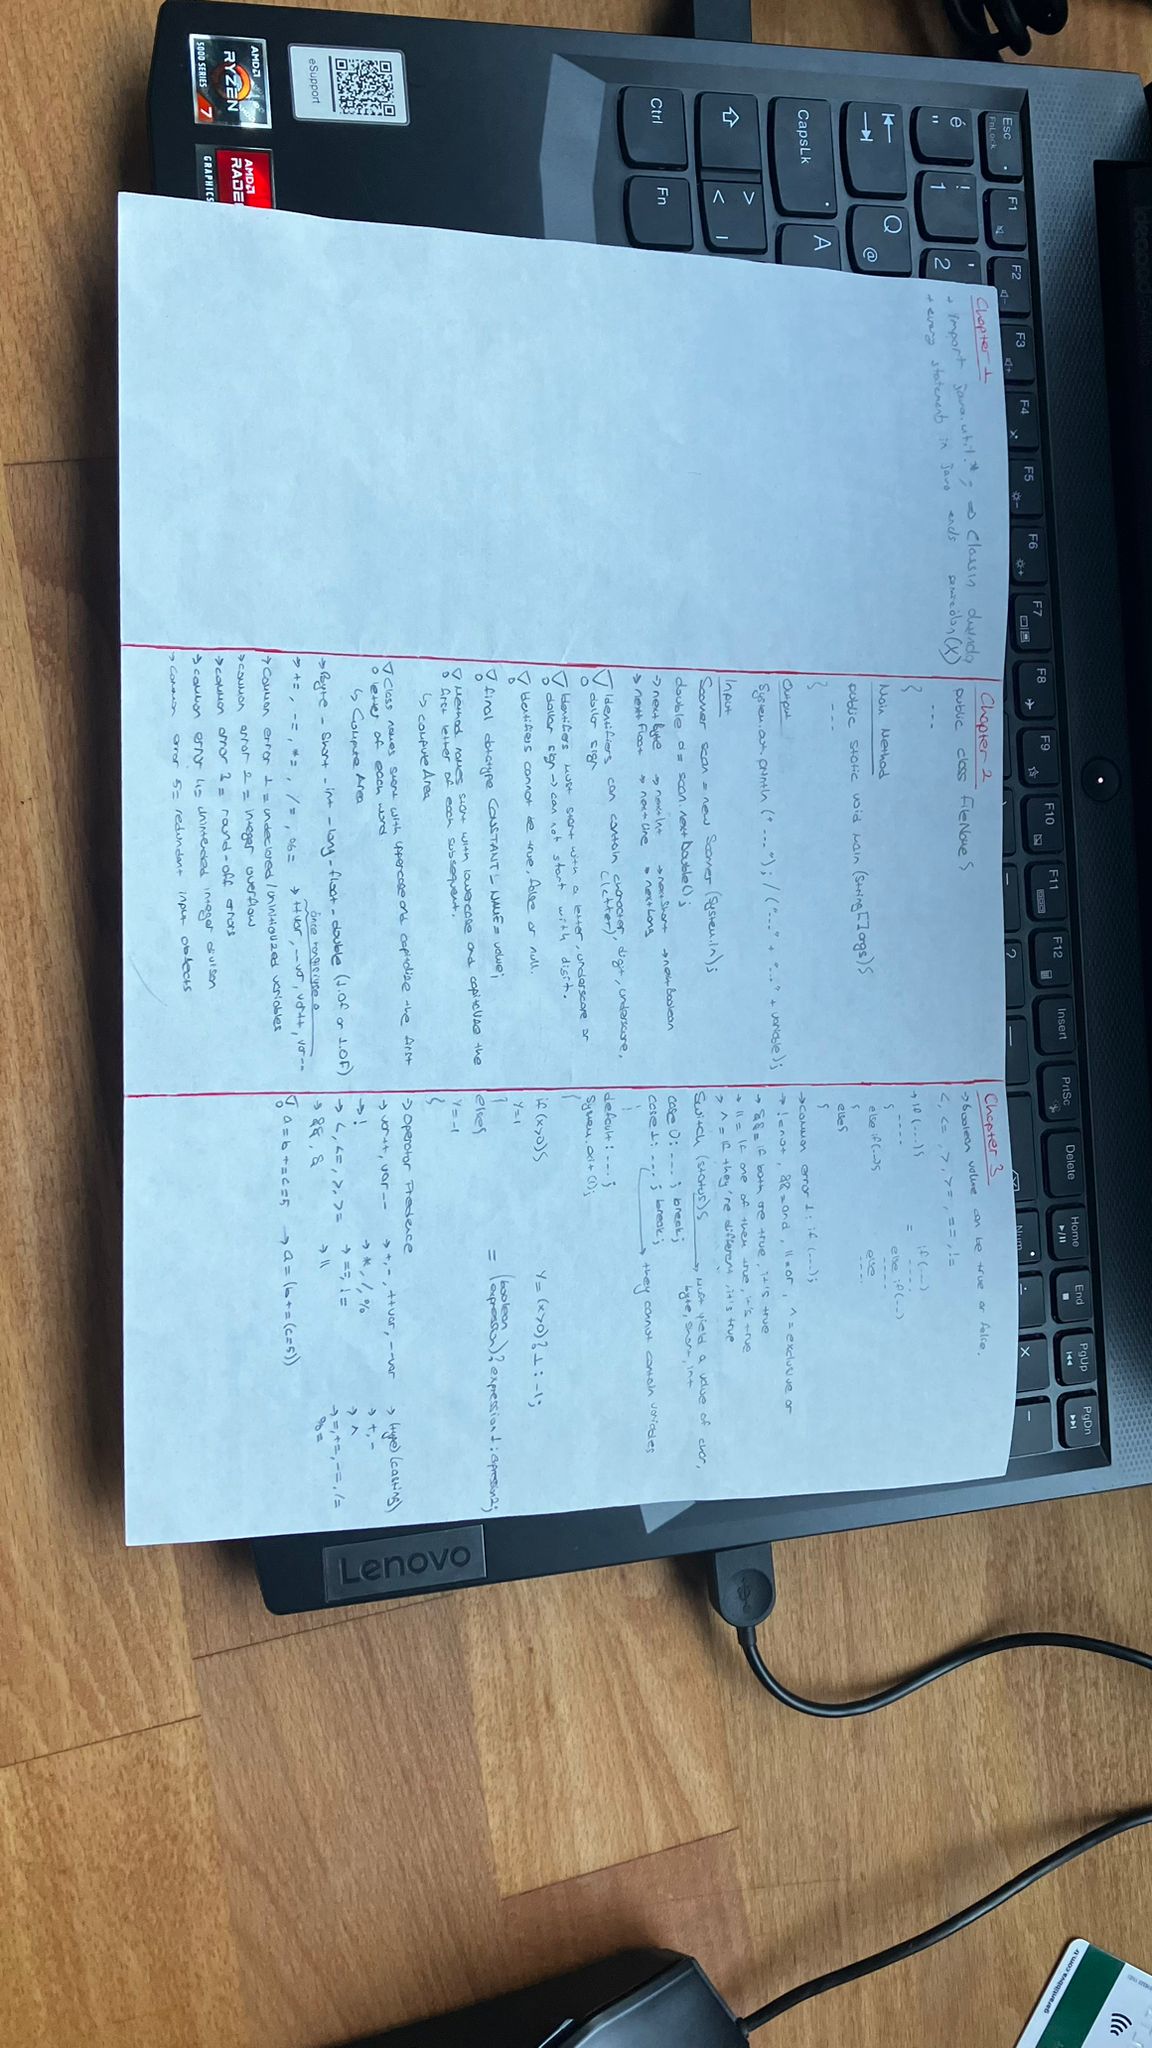 ideapad GAMING
Esc
FnLock
F1
F2
F3
F4
F5
F6
F7
F8
F9
F10
F11
F12
Insert
PrtSc
Delete
Home
End
PgUp
PgDn
é
"
!
1
'
2
?
Num
Q
@
CapsLk
A
>
<
Ctrl
Fn
eSupport
AMD
RYZEN
5000 SERIES 7
AMD
RADE
GRAPHICS
Lenovo
garantibbva.com.tr
Chapter 1
→ import java.util.*; => Classın dışında
→ every statement in java ends semicolon (X)
Chapter 2
public class FileName {
---
}
Main Method
public static void main (String[] args) {
---
}
Output
System.out.println ("---"); / ("---" + "---" + variable);
Input
Scanner scan = new Scanner (System.in);
double d = scan.nextDouble();
→ nextByte → nextInt → nextShort → nextBoolean
→ nextFloat → nextLine → nextLong
Identifiers can contain character, digit, underscore,
(letter)
dollar sign
Identifiers must start with a letter, underscore or
dollar sign → can not start with digit.
Identifiers cannot be true, false or null.
final datatype CONSTANT_NAME = value;
Method names start with lowercase and capitalize the
first letter of each subsequent.
↳ computeArea
Class names start with uppercase and capitalize the first
letter of each word
↳ ComputeArea
→ Byte - Short - int - long - float - double (1.0f or 1.0F)
önce
→ +=, -=, *=, /=, %= → ++var, --var, var++, var--
→ Common error 1 = undeclared/uninitialized variables
→ common error 2 = integer overflow
→ common error 3 = round-off errors
→ common error 4 = unintended integer divison
→ common error 5 = redundant input objects
Chapter 3
→ boolean value can be true or false.
<, <=, >, >=, ==, !=
→ if (---) { = if (---)
---- ----
} else if (---)
else if (---) { ----
} else
else { ----
}
→ common error 1: if (---);
→ ! = not, && = and, || = or, ^ = exclusive or
→ && = if both are true, it's true
→ || = If one of them true, it's true
→ ^ = If they're different, it's true
Switch (status) { → must yield a value of char,
byte, short, int
case 0: ---; break;
case 1: ---; break;
→ they cannot contain variables
default: ---;
System.exit(1);
}
if (x>0) { Y = (x>0) ? 1 : -1;
Y=1
} = (boolean expression) ? expression1 : expression2;
else {
Y=-1
}
→ Operator Predence
→ var++, var-- → +, -, ++var, --var → (type) (casting)
→ ! → *, /, % → +, -
→ <, <=, >, >= → ==, != → ^
→ &&, & → || → =, +=, -=, /=
%=
a = b += c = 5 → a = (b += (c = 5))